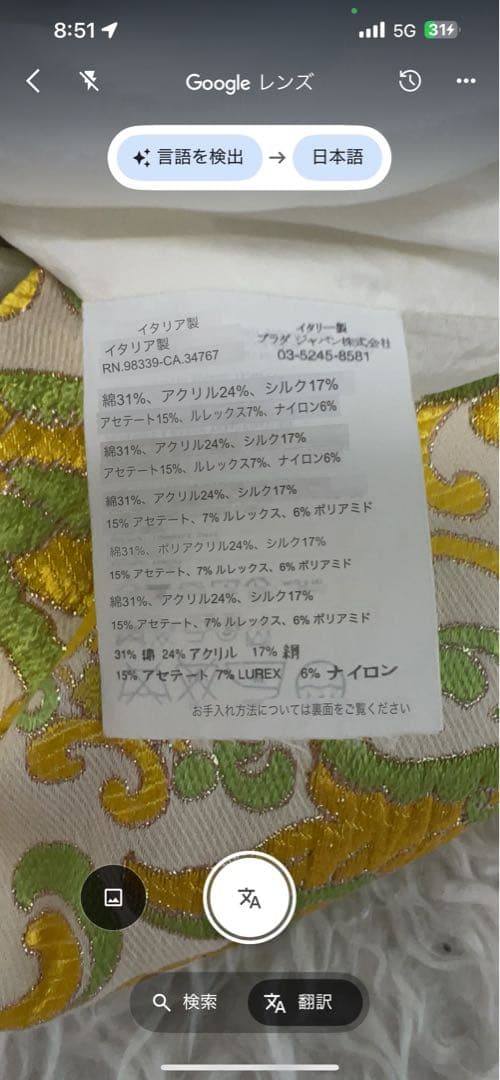 8:51
5G
31
Google レンズ
言語を検出 → 日本語
イタリア製
イタリア製
RN.98339-CA.34767
イタリー製
プラダ ジャパン株式会社
03-5245-8581
綿31%、アクリル24%、シルク17%
アセテート15%、ルレックス7%、ナイロン6%
綿31%、アクリル24%、シルク17%
アセテート15%、ルレックス7%、ナイロン6%
綿31%、アクリル24%、シルク17%
15% アセテート、7% ルレックス、6% ポリアミド
綿31%、ポリアクリル24%、シルク17%
15% アセテート、7% ルレックス、6% ポリアミド
綿31%、アクリル24%、シルク17%
15% アセテート、7% ルレックス、6% ポリアミド
31% 綿 24% アクリル 17% 絹
15% アセテート 7% LUREX 6% ナイロン
お手入れ方法については裏面をご覧ください
検索
翻訳